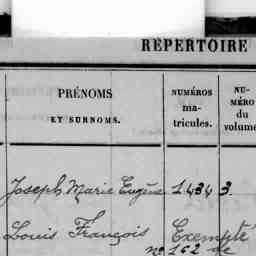 RÉPERTOIRE
PRÉNOMS
ET SURNOMS.
NUMÉROS
ma-
tricules.
NU-
MÉRO
du
volume
Joseph Marie Eugène 1434 3.
Louis François Exempté
no 162 de